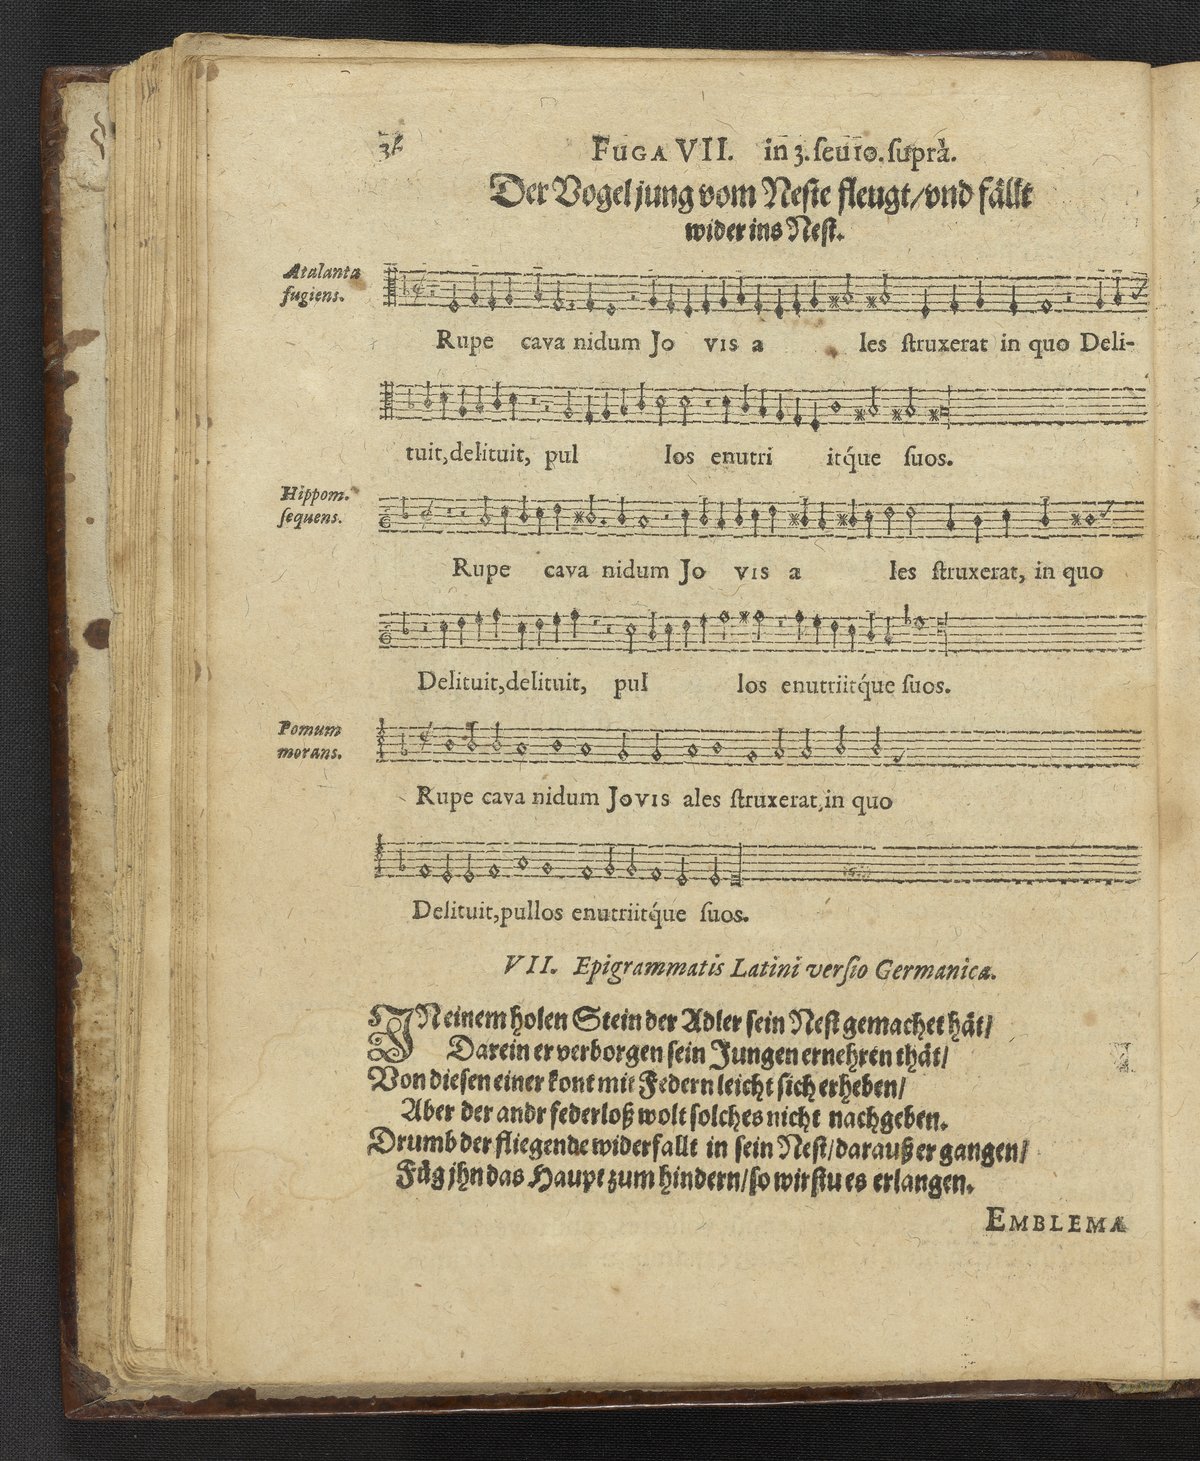 FUGA VII. in 3. ſeu 10. ſuprà.
Der Vogel jung vom Neſte fleugt/vnd fällt
wider ins Neſt.
Atalanta
fugiens.
Rupe cava nidum Jo vis a les ſtruxerat in quo Deli-
tuit,delituit, pul los enutri itq́ue ſuos.
Hippom.
ſequens.
Rupe cava nidum Jo vis a les ſtruxerat, in quo
Delituit,delituit, pul los enutriitq́ue ſuos.
Pomum
morans.
Rupe cava nidum Jovis ales ſtruxerat,in quo
Delituit,pullos enutriitq́ue ſuos.
VII. Epigrammatis Latini verſio Germanica.
IN einem holen Stein der Adler ſein Neſt gemachet hät/
Darein er verborgen ſein Jungen ernehren thät/
Von dieſen einer kont mit Federn leicht ſich erheben/
Aber der andr federloß wolt ſolches nicht nachgeben.
Drumb der fliegende widerfallt in ſein Neſt/darauß er gangen/
Füg jhn das Haupt zum hindern/ſo wirſtu es erlangen.
EMBLEMA